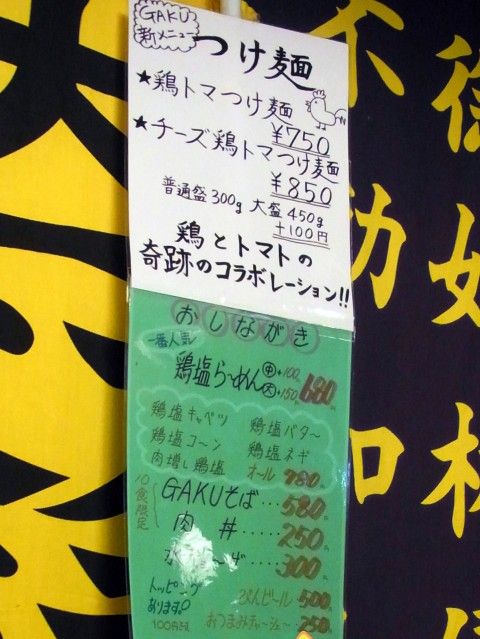 GAKU
新メニュー
つけ麺
★鶏トマつけ麺
¥750
★チーズ鶏トマつけ麺
¥850
普通盛300g 大盛450g
+100円
鶏とトマトの
奇跡のコラボレーション!!
おしながき
一番人気!
鶏塩らーめん 中+100 大+150 680
鶏塩キャベツ 鶏塩バター
鶏塩コーン 鶏塩ネギ
肉増し鶏塩 オール780
10食限定
GAKUそば・・・・580
肉丼・・・・250
300
トッピング
あります。
100円〜
びんビール・・500
おつまみチャーシュー・・250